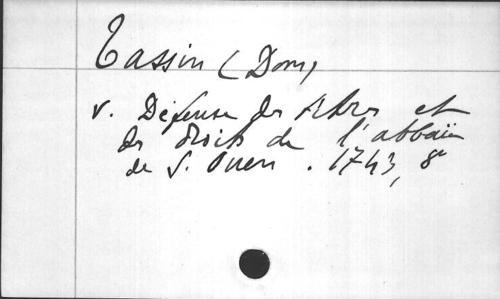 Tassin (Dom)
v. Défense des titres et
des droits de l'abbaïe
de S. Ouen. 1743, 8º